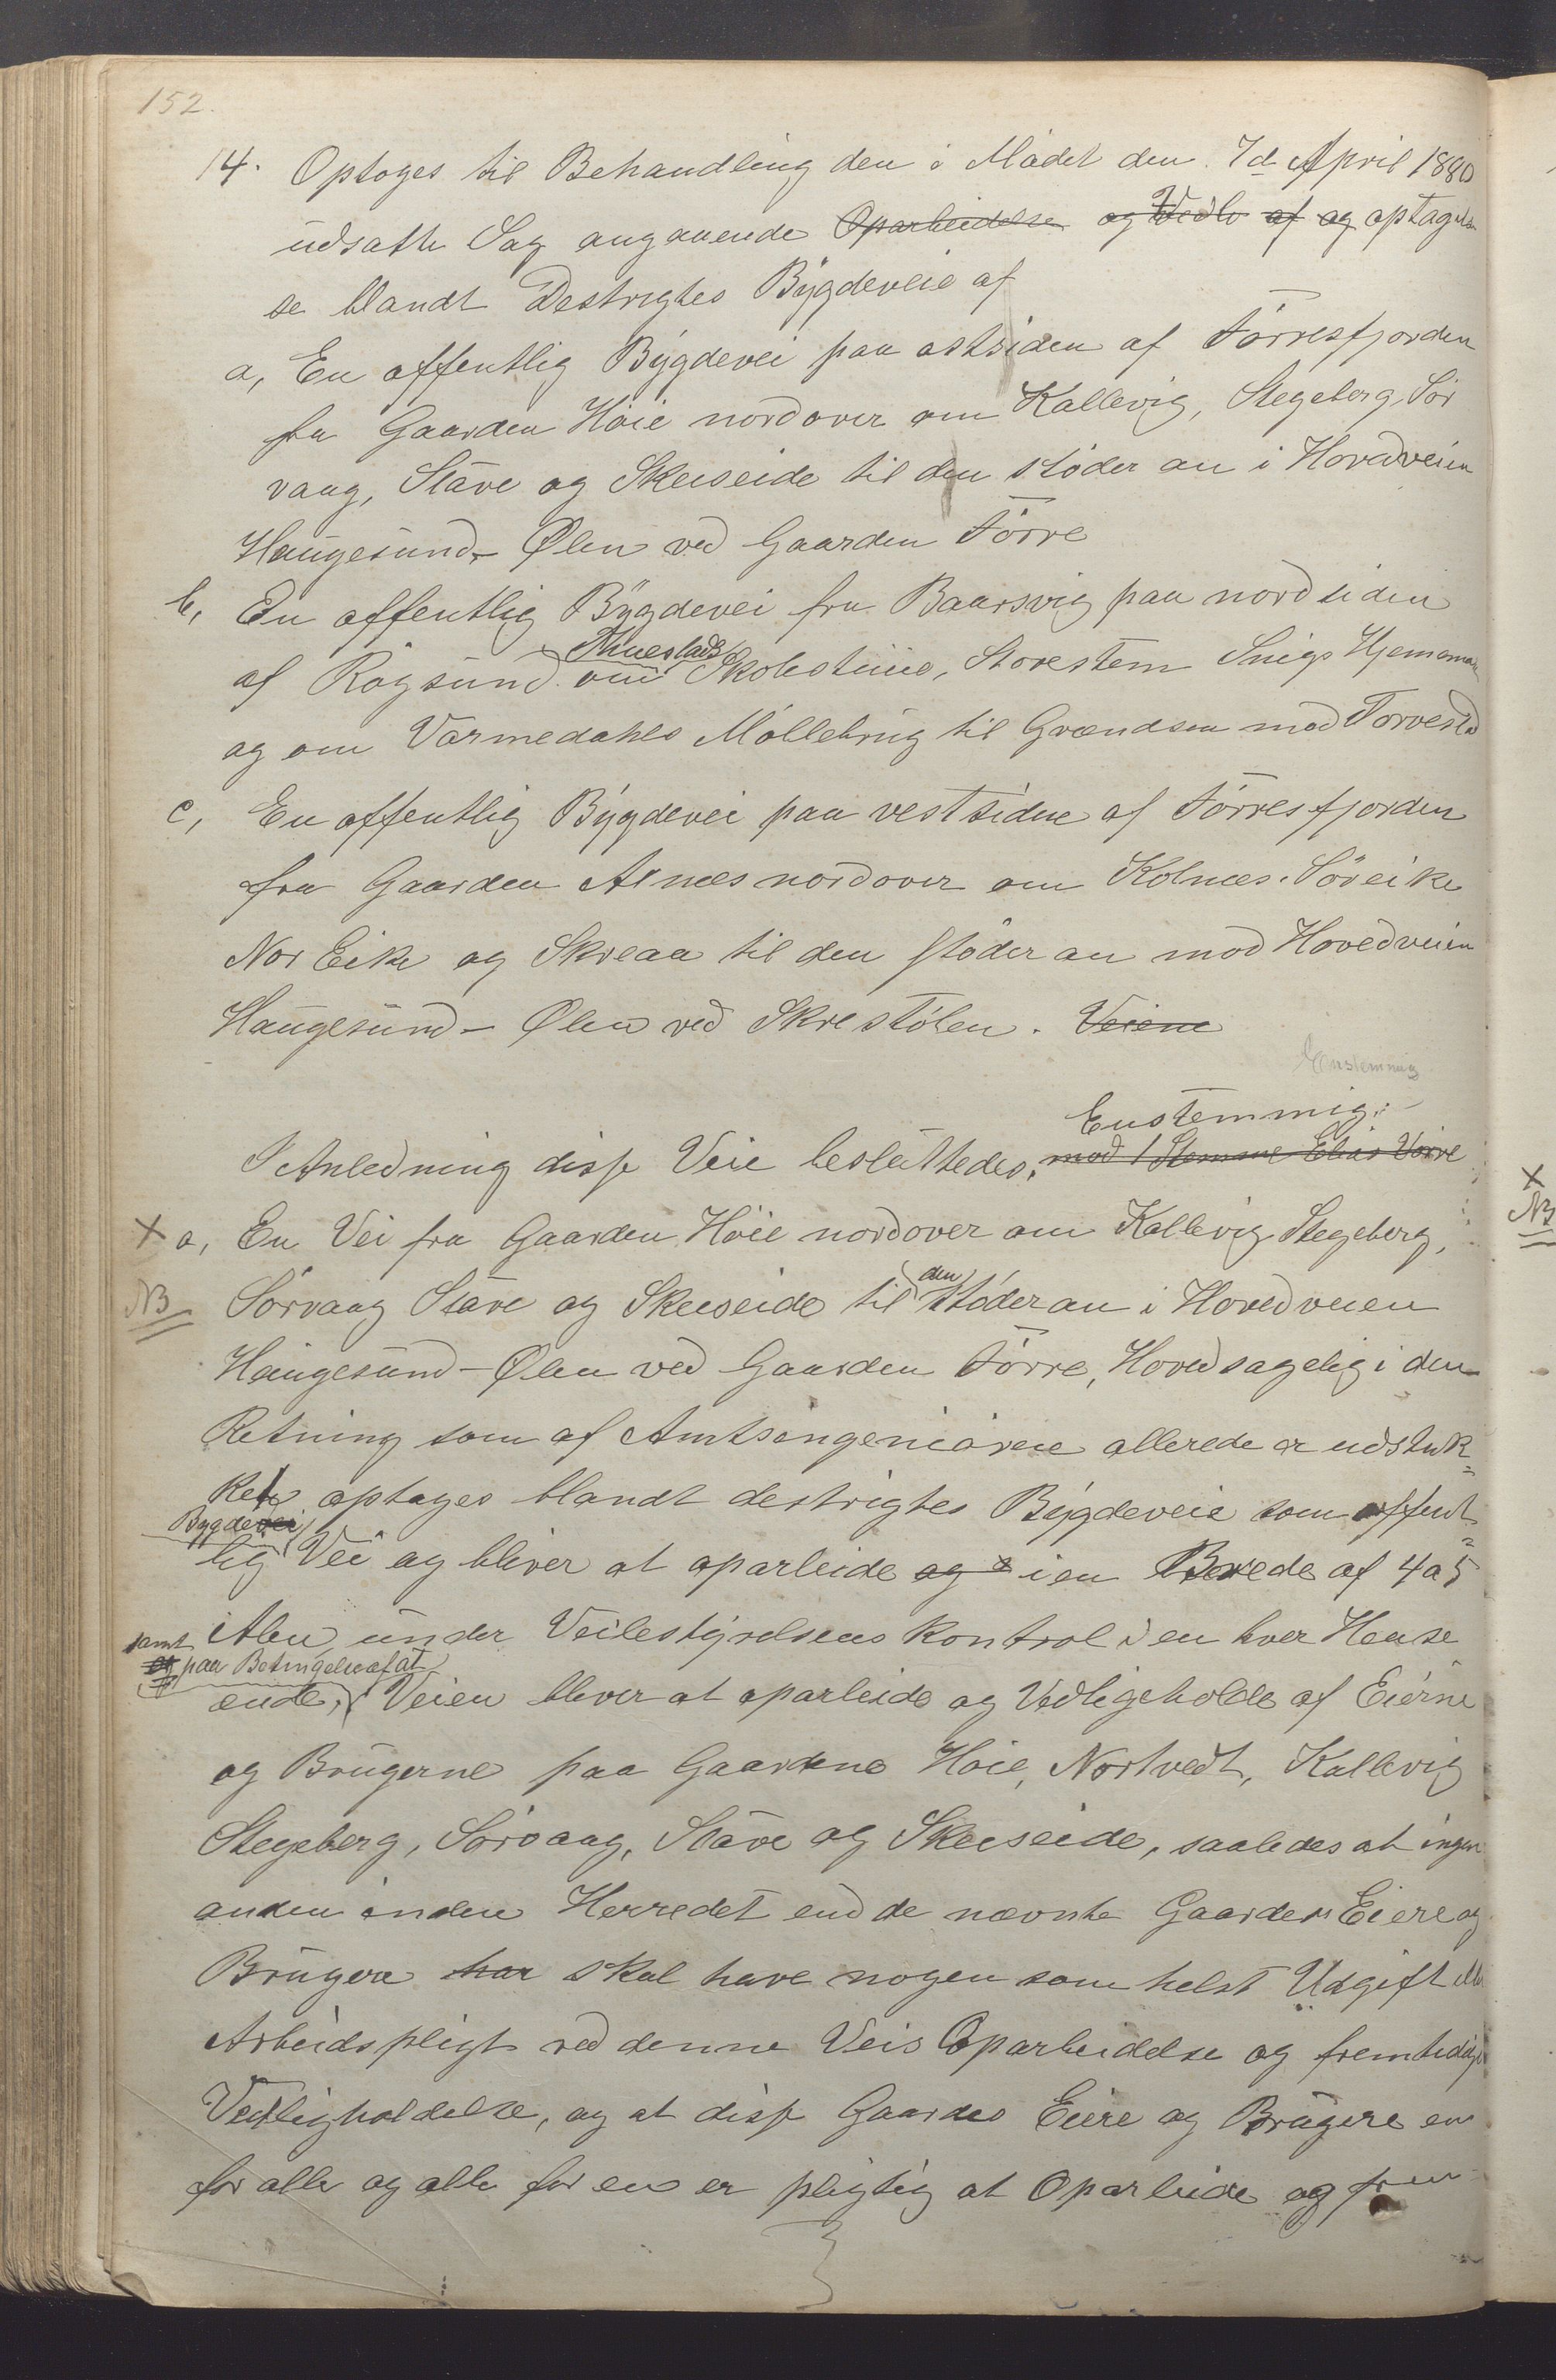 152.
14. Optoges til Behandling den i Mödet den 7d April 1880
udsatte Sag angaaende Oparbeidelse og Vedlv af og optagel
se blandt Destrigtes Bÿgdeveie af
a, En offentlig Bÿgdevei paa ostsiden af Förresfjorden
fra Gaarden Höie nordover om Kallevig, Stegeberg, Sör
vaag, Stave og Skeiseide til den stöder an i Hovedveien
Haugesund- Ølen ved Gaarden Förre
b, En offentlig Bÿgdevei fra Baarsvig paa nordsiden
af Rögsund om Skolestuue, Storestem Snigs
og om Varmedahls Möllebrug til Grændsen mod Torvestad
c, En offentlig Bÿgdevei paa vestsiden af Förresfjorden
fra Gaarden Alnæs nordover om Kolnæs. Söreike
Nor Eike og Skreaa til den stöder an mod Hovedveien
Haugesund- Ølen ved Skrestölen. Veiene
Enstemmig
Enstemmig:
I Anledning disse Veie besluttedes, mod 1 Stemme Elias Vorre
X a, En Vei fra Gaarden Höie nordover om Kallevig Stegeberg,
X
NB
den
NB Sörvaag Stave og Skeiseide til stöder an i Hovedveien
Haugesund-Ølen ved Gaarden Förre, Hovedsagelig i den
Retning som af Amtsingeniörene allerede er udstuk=
ket optages blandt destrigtes Bÿgdeveie som offent=
Bygdevei
lig Vei og bliver at oparbeide og i en Brede af 4 a 5
Alen under Veibestÿrelsens Kontrol i en hver Hense
samt og paa Betingelse af at
ende, Veien bliver at oparbeide og Vedligeholde af Eierne
og Brugerne paa Gaardene Höie, Nortvedt, Kallevig
Stegeberg, Sörvaag, Stave og Skeiseide, saaledes at ingen
anden inden Herredet end de nævnte Gaarders Eiere og
Brugere har skal have nogen som helst Udgift eller
Arbeidspligt ved denne Veis Oparbeidelse og fremtidige
Vedligholdelse, og at disse Gaardes Eiere og Brugere en
for alle og alle for en er pligtig at Oparbeide og frem